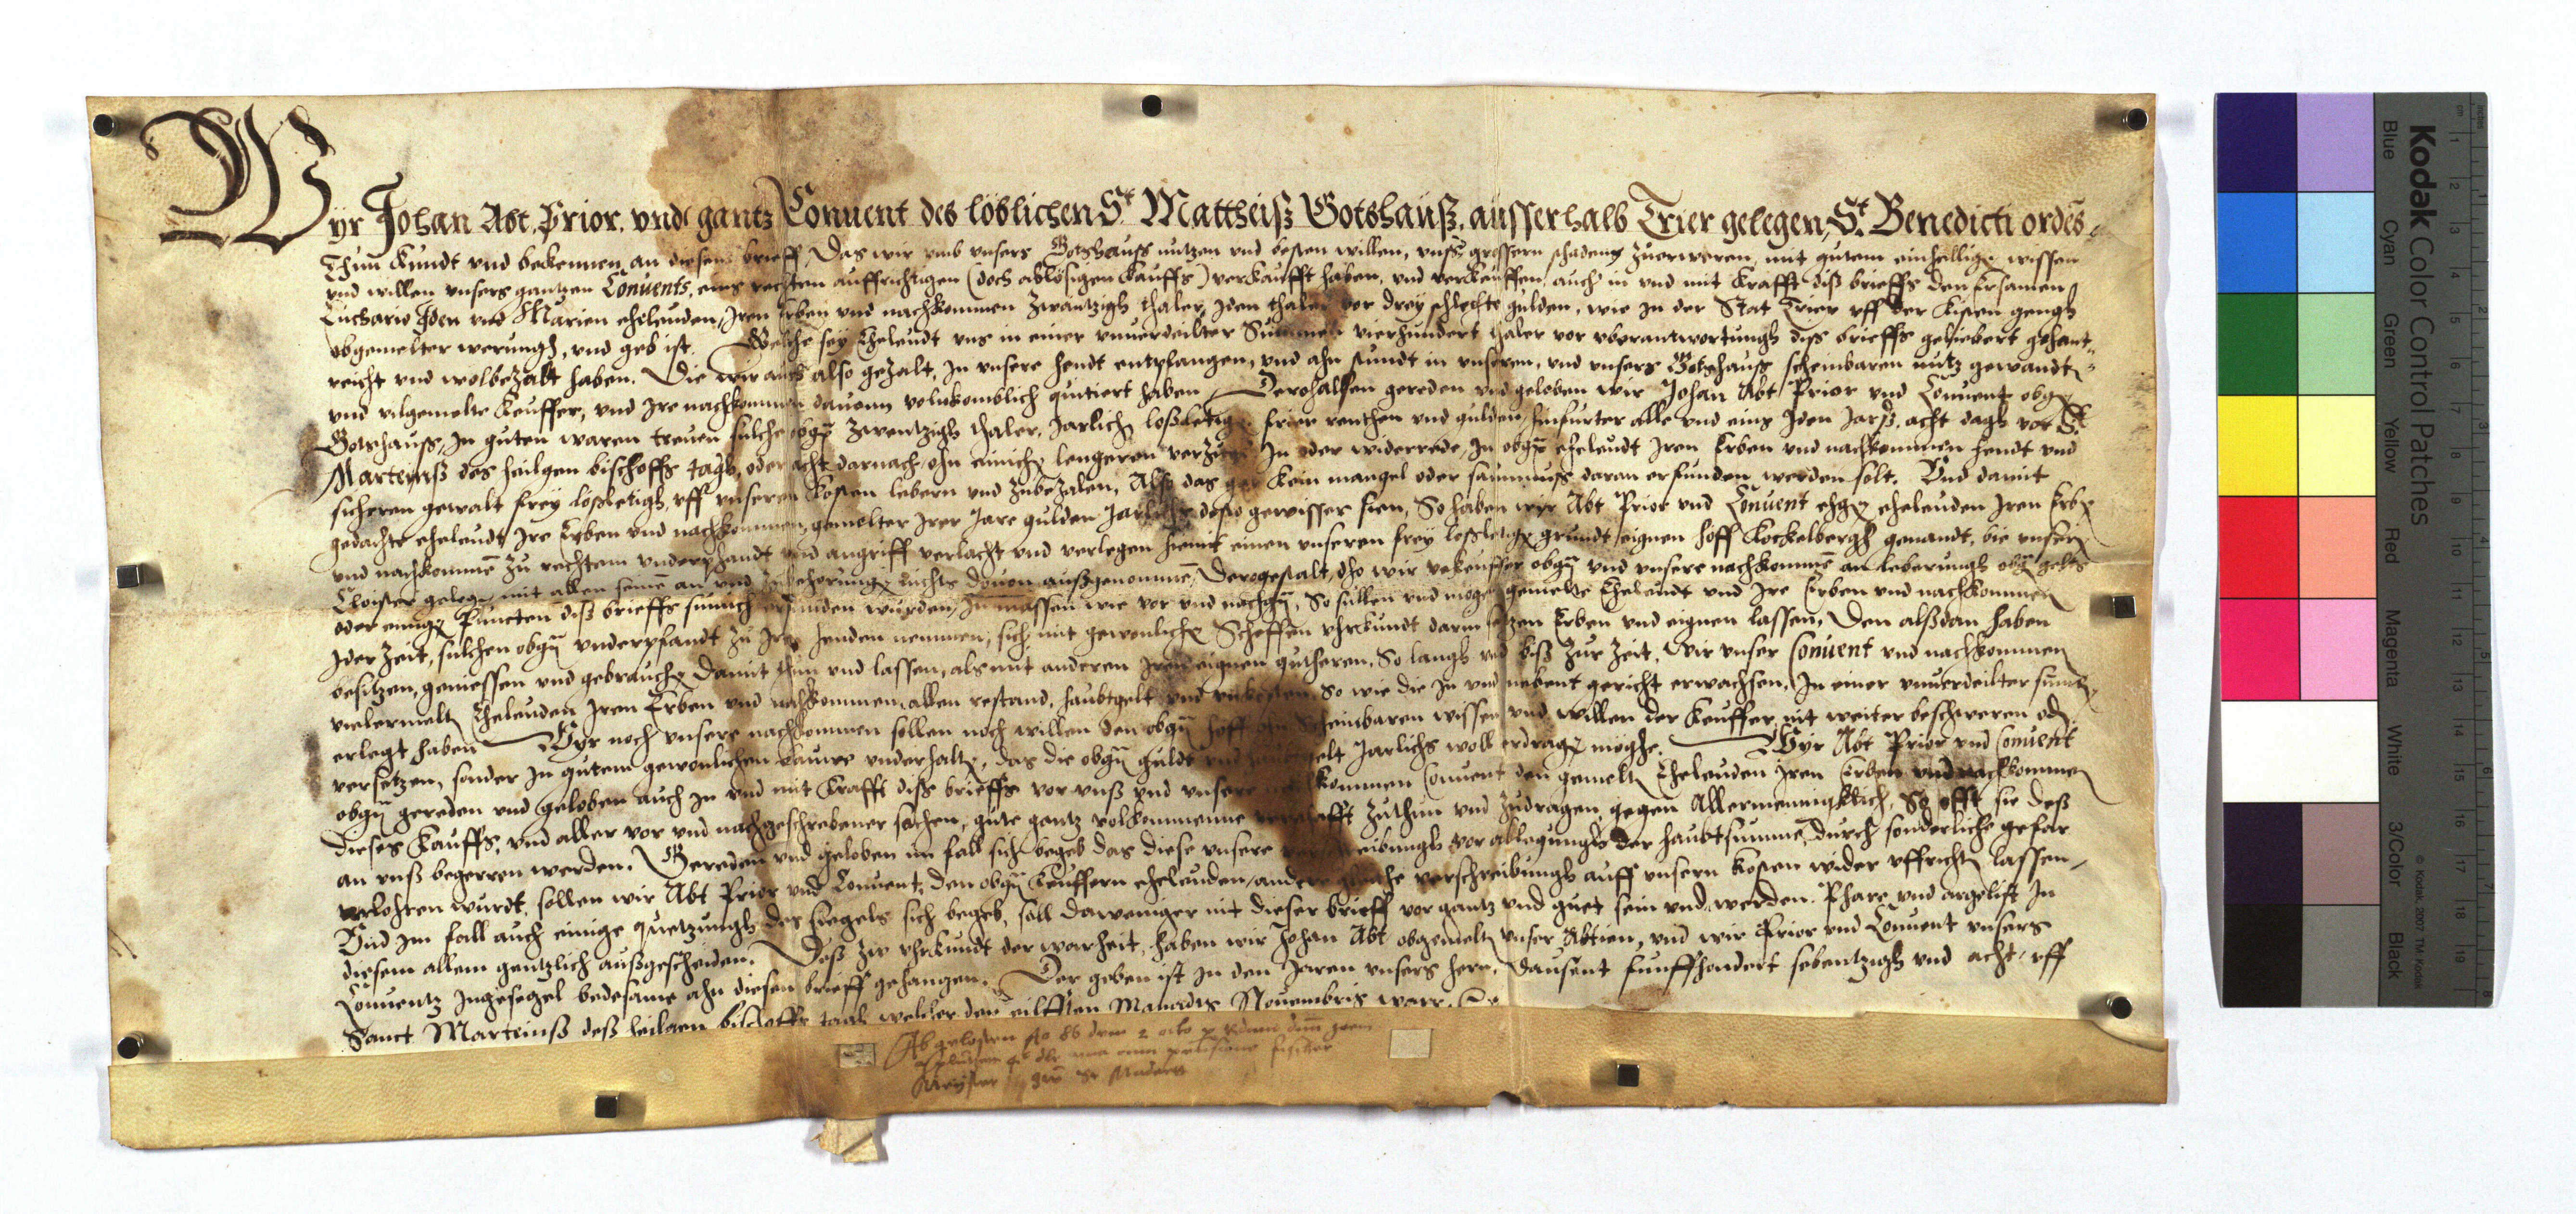 Wyr Johan Abt, Prior, vnd gantz Conuent des löblichen St Mattheiß Gotshauß, ausserhalb Trier gelegen, St Benedicti ordēs
Thun Kundt vnd bekennen an diesem brieff, Das wir vmb vnsers Gotshauß nutzen vnd besten willen, vnß grossern schadens zuerweren, mit gutem einhellige wissen
vnd willen vnsers gantzen Conuents, eins rechten auffrichtigen (doch ablösigen Kauffs) verkaufft haben, vnd verkeuffen, auch in vnd mit Krafft diß brieffs den Ersamen
Euchario vnd Marien eheleuden, Iren Erben vnd nachkommen zwantzigh thaler, Iden thaler vor drey schlechte gulden, wie in der Stat Trier vff der Kisten gengh
obgemelter werungh, vnd geb ist. Welche sey Eheleudt vns in einer vnuerdeilter Summen vierhundert thaler vor vberantwortungh diß brieffs geliebert gehant
reicht vnd wolbezalt haben. Die wir auch also gezalt, In vnsere hendt entpfangen, vnd ahn stundt in vnseren, vnd vnsers Gotshauß scheinbaren nutz gewandt
vnd vilgemelte Keuffer, vnd Ire nachkommen dauonn volnkomblich quitiert haben, Derohalben gereden vnd geloben wir Johan Abt Prior vnd Conuent obg
Gotshauß, In guten waren treuen sulche obgn zwentzigh thaler, Jarlich loßledige frier renthen vnd gulden, hinfurter alle vnd eins Iden Jarß, acht dagh vor St
Marteinß des heilgen bischoffs tagh, oder acht darnach, ohn einich lengeren verzugh In oder widerrede, In obgn eheleudt Iren Erben vnd nachkommen hendt vnd
sicheren gewalt frey loßledigh, vff vnseren Kosten lebern vnd zubezalen, Also das gar kein mangel oder saumnuß daran erfunden werden solt. Vnd damit
gedachte eheleudt Ire Erben vnd nachkommen, gemelter Irer Jare gulden Jarlichs desto gewisser sien, So haben wyr Abt Prior vnd Conuent ehg eheleuden Iren Erb
vnd nachkommē zu rechtem vnderpfandt vnd angriff verlacht vnd verlegen hiemit einen vnseren frey loßledige grundt eignen hoff Kockelbergh genandt, bie vnser
Cloister gelege, mit allen seinē an vnd zubehorunge nichts dauon außgenommē, Derogestalt, dho wir verkeuffer obgn vnd vnsere nachkommē an leberungh obgn gelts
oder einige Puncten diß brieffs sumich erfunden wurden, In massen wie vor vnd nachgn, So sullen vnd moge gemelte Eheleudt vnd Ire Erben vnd nachkommen
Ider zeit, sulchen obgn vnderpfandt zu Iren henden nemmen, sich mit gewonliche Scheffen vhrkundt darin setzen Erben vnd eignen lassen, Den alßdan haben
besitzen, geniessen vnd gebrauche damit thun vnd lassen, als mit anderen Iren eignen gutheren, So langh vnd biß zur zeit, Wir vnser Conuent vnd nachkommen
vielermelt Eheleuden Iren Erben vnd nachkommen allen restand, haubtgelt vnd vnkosten so wie die In vnd nebent gericht erwachsen, In einer vnuerdeilter sum
erlegt haben Wyr noch vnsere nachkommen sollen noch willen den obgn hoff scheinbaren wissen vnd willen der Keuffer, nit weiter beschweren od
versetzen, sonder In gutem gewonlichen bauwe vnderhalte, das die obgn guldt vnd Jarlichs woll erdrage möghe. Wyr Abt Prior vnd Conuent
obgn gereden vnd geloben auch in vnd mit Krafft diß brieffs vor vnß vnd vnsere nachkommen Conuent den gemelt Eheleuden Iren Erben vnd nachkommen
dieses Kauffs, vnd aller vor vnd nachgeschrebener sachen, gute gantz volkommenne werschafft zuthun vnd zudragen, gegen Allermenniglich, So offt sie deß
an vnß begerren werden. Gereden vnd geloben im fall sich begeb das diese vnsere verschreibungh vor ablegungh der haubtsumme, durch sonderliche gefar
verlohren wurdt, sollen wir Abt Prior vnd Conuent, den obgn Keuffern eheleuden, andere gleiche verschreibungh auff vnsern kosten wider vffricht lassen,
Vnd Im fall auch einige quetzungh des siegels sich begeb, soll daweniger nit dieser brieff vor gantz vnd guet sein vnd werden. Phare vnd argelist In
diesem allem gentzlich außgescheiden. Deß zu vhrkundt der warheit, haben wir Johan Abt obgemelt vnser Abtien, vnd wir Prior vnd Conuent vnsers
Conuentz Ingesegel bedesame ahn diesen brieff gehangen. Der geben ist In den Jaren vnsers hern, dausent funffhondert sebentzigh vnd acht, vff
Sanct Marteinß deß heilgen bischoffs tagh welcher den eilfften Manadts Nouembris warr.
Abgelosen Ao 86 den 2
Kodak Color Control Patches
Blue Cyan Green Yellow Red Magenta White 3/Color Black
© Kodak, 2007 TM: Kodak
cm 1 2 3 4 5 6 7 8 9 10 11 12 13 14 15 16 17 18 19
Inches 1 2 3 4 5 6 7 8